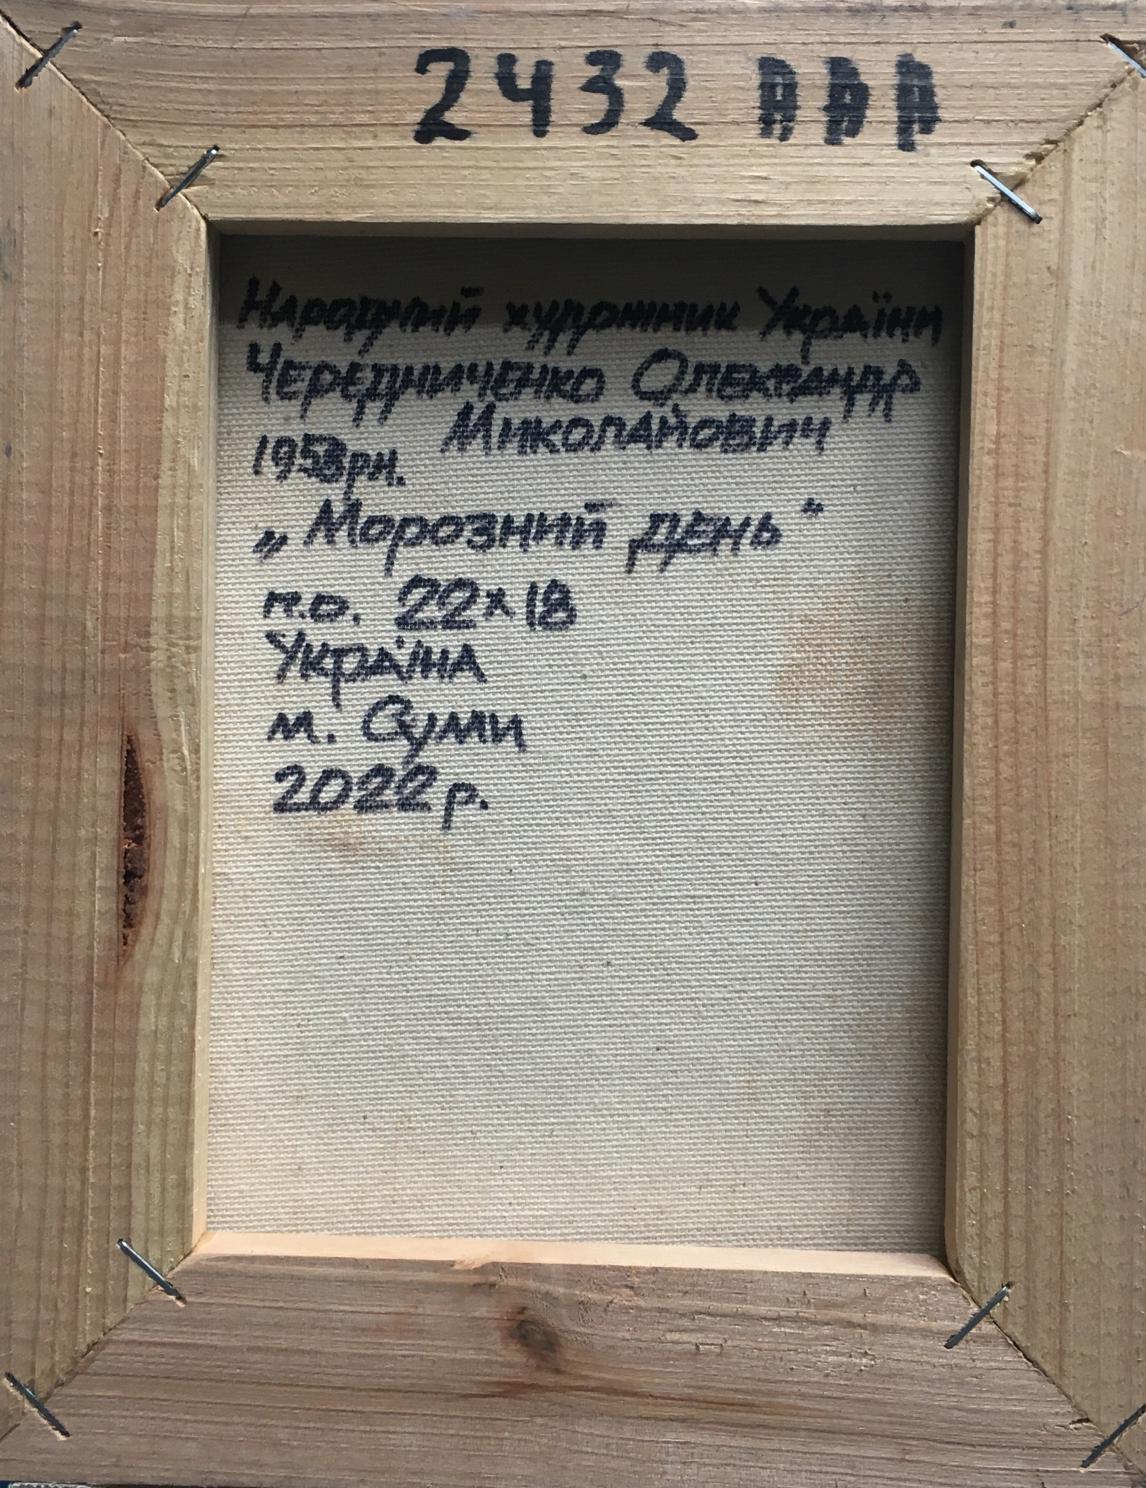 2432 ААА
Народний художник України
Чередниченко Олександр
Миколайович
1953рн.
„Морозний день"
п.о. 22х18
Україна
м. Суми
2022р.